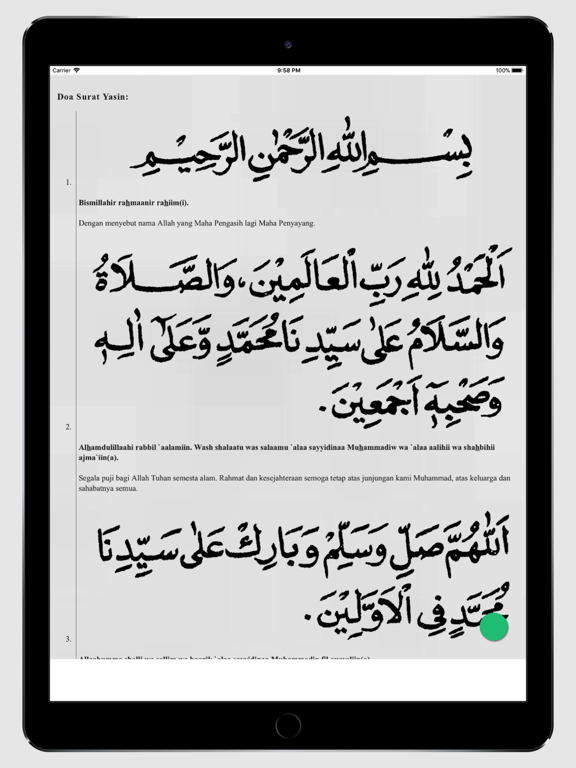 Carrier 9:58 PM 100%
Doa Surat Yasin:
بِسْــــمِ اللهِ الرَّحْمٰنِ الرَّحِيْـــمِ
1.
Bismillahir rahmaanir rahiim(i).
Dengan menyebut nama Allah yang Maha Pengasih lagi Maha Penyayang.
اَلْحَمْدُ لِلّٰهِ رَبِّ الْعَالَمِيْنَ، وَالصَّــلَاةُ
وَالسَّلَامُ عَلٰى سَيِّدِنَا مُحَمَّدٍ وَّعَلٰٓى اٰلِـهٖ
وَصَحْبِهٖٓ اَجْمَعِيْنَ.
2.
Alhamdulillaahi rabbil `aalamiin. Wash shalaatu was salaamu `alaa sayyidinaa Muhammadiw wa `alaa aalihii wa shahbihii
ajma`iin(a).
Segala puji bagi Allah Tuhan semesta alam. Rahmat dan kesejahteraan semoga tetap atas junjungan kami Muhammad, atas keluarga dan
sahabatnya semua.
اَللّٰهُمَّ صَلِّ وَسَلِّمْ وَبَارِكْ عَلٰى سَيِّدِنَا
مُحَمَّدٍ فِي الْاَوَّلِيْنَ.
3.